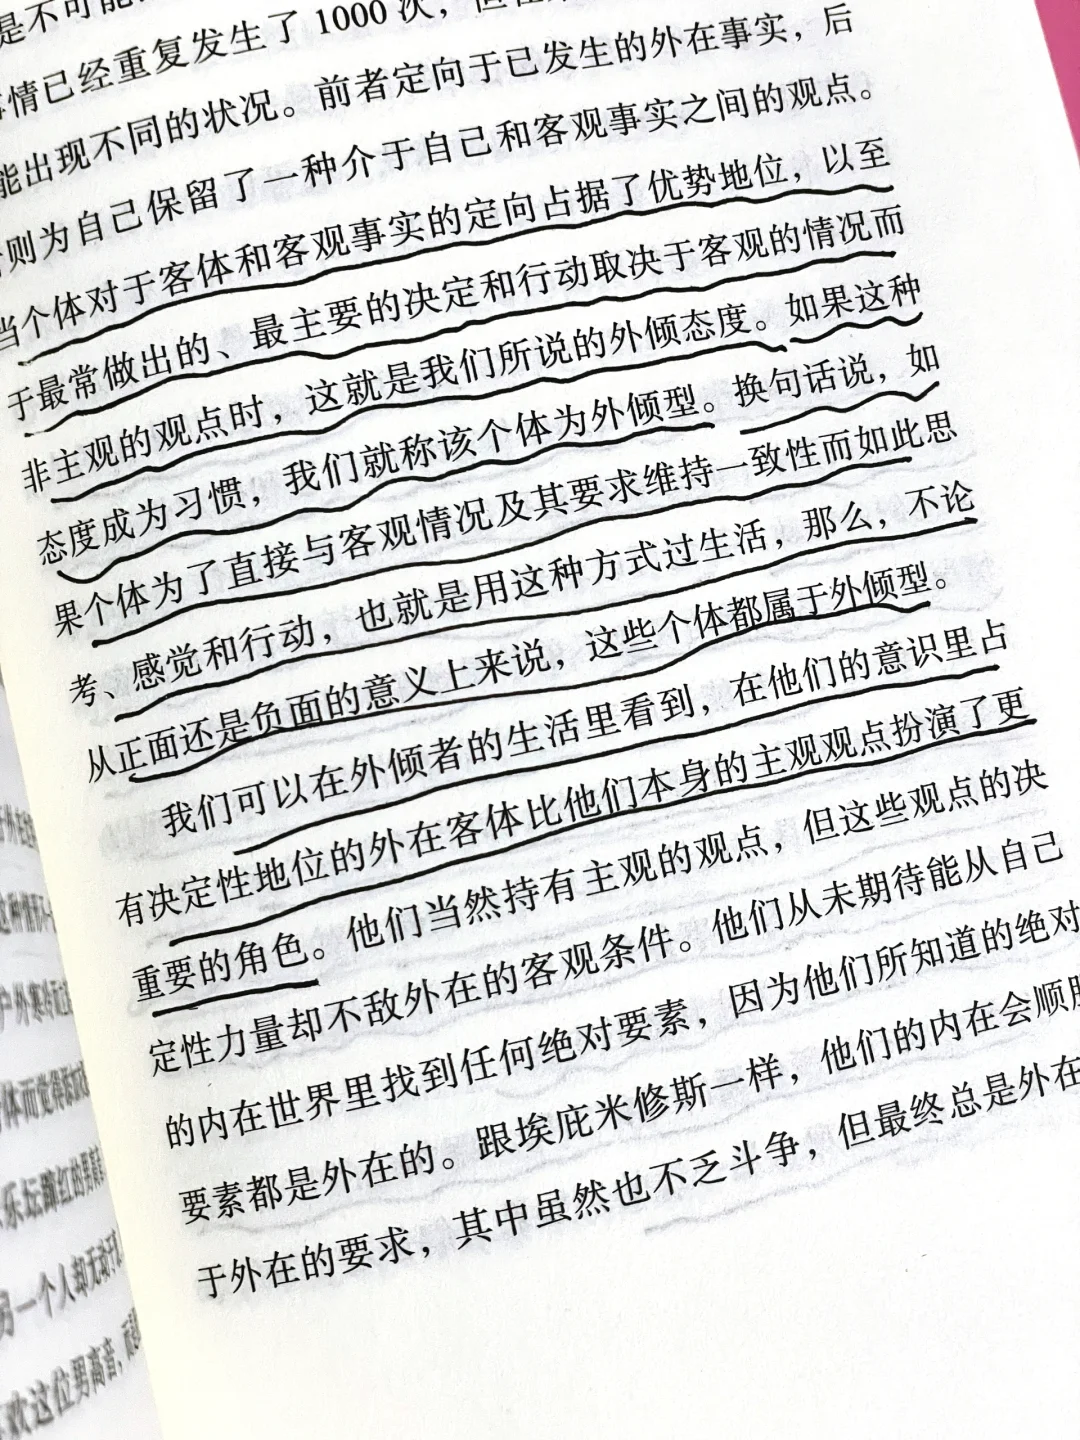 是不可能
情已经重复发生了1000次，但在
能出现不同的状况。前者定向于已发生的外在事实，后
则为自己保留了一种介于自己和客观事实之间的观点。
当个体对于客体和客观事实的定向占据了优势地位，以至
于最常做出的、最主要的决定和行动取决于客观的情况而
非主观的观点时，这就是我们所说的外倾态度。如果这种
态度成为习惯，我们就称该个体为外倾型。换句话说，如
果个体为了直接与客观情况及其要求维持一致性而如此思
考、感觉和行动，也就是用这种方式过生活，那么，不论
从正面还是负面的意义上来说，这些个体都属于外倾型。
我们可以在外倾者的生活里看到，在他们的意识里占
有决定性地位的外在客体比他们本身的主观观点扮演了更
重要的角色。他们当然持有主观的观点，但这些观点的决
定性力量却不敌外在的客观条件。他们从未期待能从自己
的内在世界里找到任何绝对要素，因为他们所知道的绝对
要素都是外在的。跟埃庇米修斯一样，他们的内在会顺服
于外在的要求，其中虽然也不乏斗争，但最终总是外在
乐坛蹿红的男高音
另一个人却无动于
欢这位男高音，而